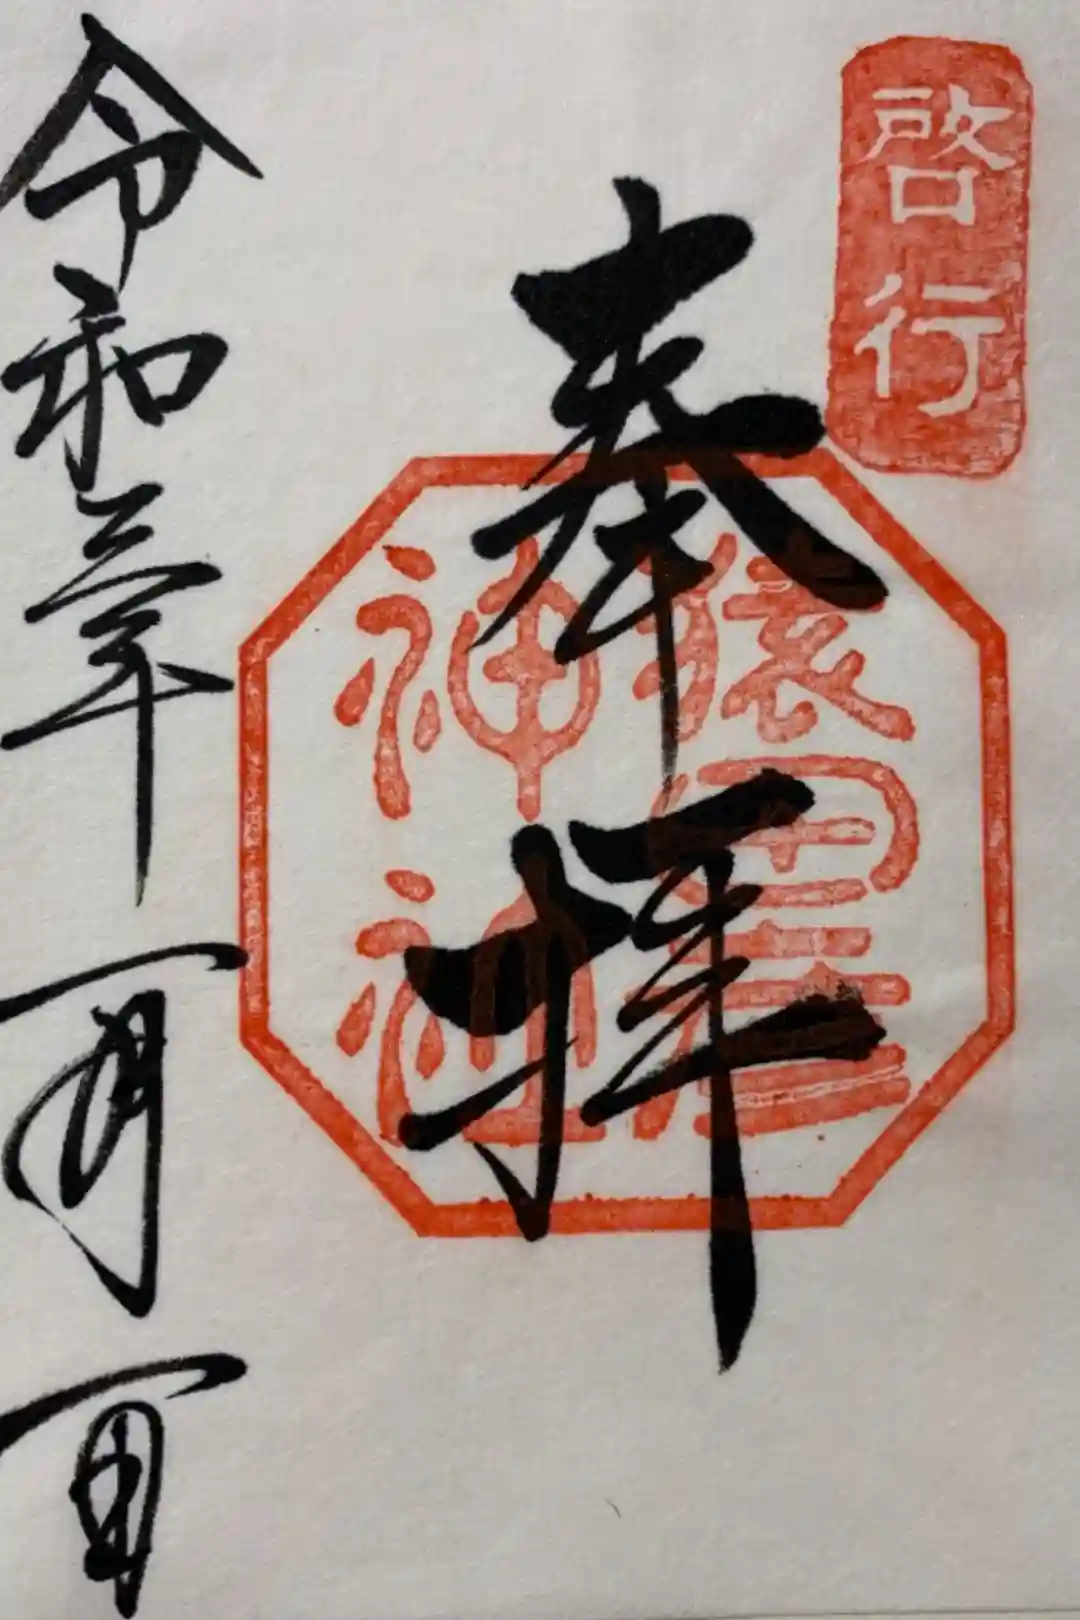 啓行
奉拝
猿田彦
神社
令和三年一月一日